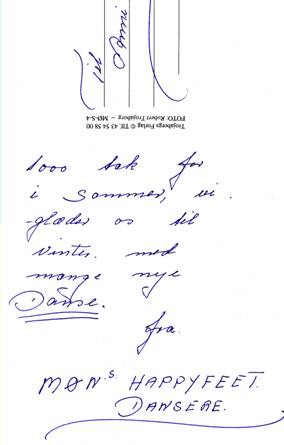 Til
Trojabergs Forlag © Tlf. 43 54 58 00
FOTO: Robert Trojaborg – MØ-S-4
1000 tak for
i Sommer, vi
glæder os til
Vinter. med
mange nye
Danse.
fra
MØN.s HAPPYFEET.
DANSERE.